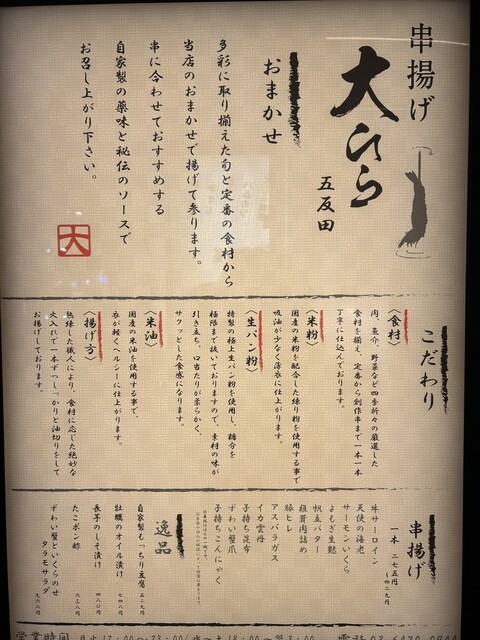 串揚げ
大ひら
五反田
おまかせ
多彩に取り揃えた旬と定番の食材から
当店のおまかせで揚げて参ります。
串に合わせておすすめする
自家製の薬味と秘伝のソースで
お召し上がり下さい。
大
こだわり
〈食材〉
肉、魚介、野菜など四季折々の厳選した
食材を揃え、定番から創作串まで一本一本
丁寧に仕込んでおります。
〈米粉〉
国産の米粉を配合した練り粉を使用する事で
吸油が少なく薄衣に仕上がります。
〈生パン粉〉
特製の極上生パン粉を使用し、糖分を
極限まで抜いておりますので、素材の味が
引き立ち、口当たりが柔らかく、
サクッとした食感になります。
〈米油〉
国産の米油を使用する事で、
衣が軽くヘルシーに仕上がります。
〈揚げ方〉
熟練した職人により、食材に応じた絶妙な
火入れで一本ずつしっかりと油切りをして
お揚げしております。
串揚げ
一本 二七五円
〜四二九円
牛サーロイン
天使の海老
サーモンいくら
よもぎ生麩
帆立バター
椎茸肉詰め
豚ヒレ
アスパラガス
イカ雲丹
子持ち昆布
ずわい蟹爪
子持ちこんにゃく
逸品
自家製もっちり豆腐 五二九円
牡蠣のオイル漬け 七四八円
長芋のしそ漬け 四八〇円
たこポン酢 六三八円
ずわい蟹といくらのせ
タラモサラダ 九六八円
営業時間